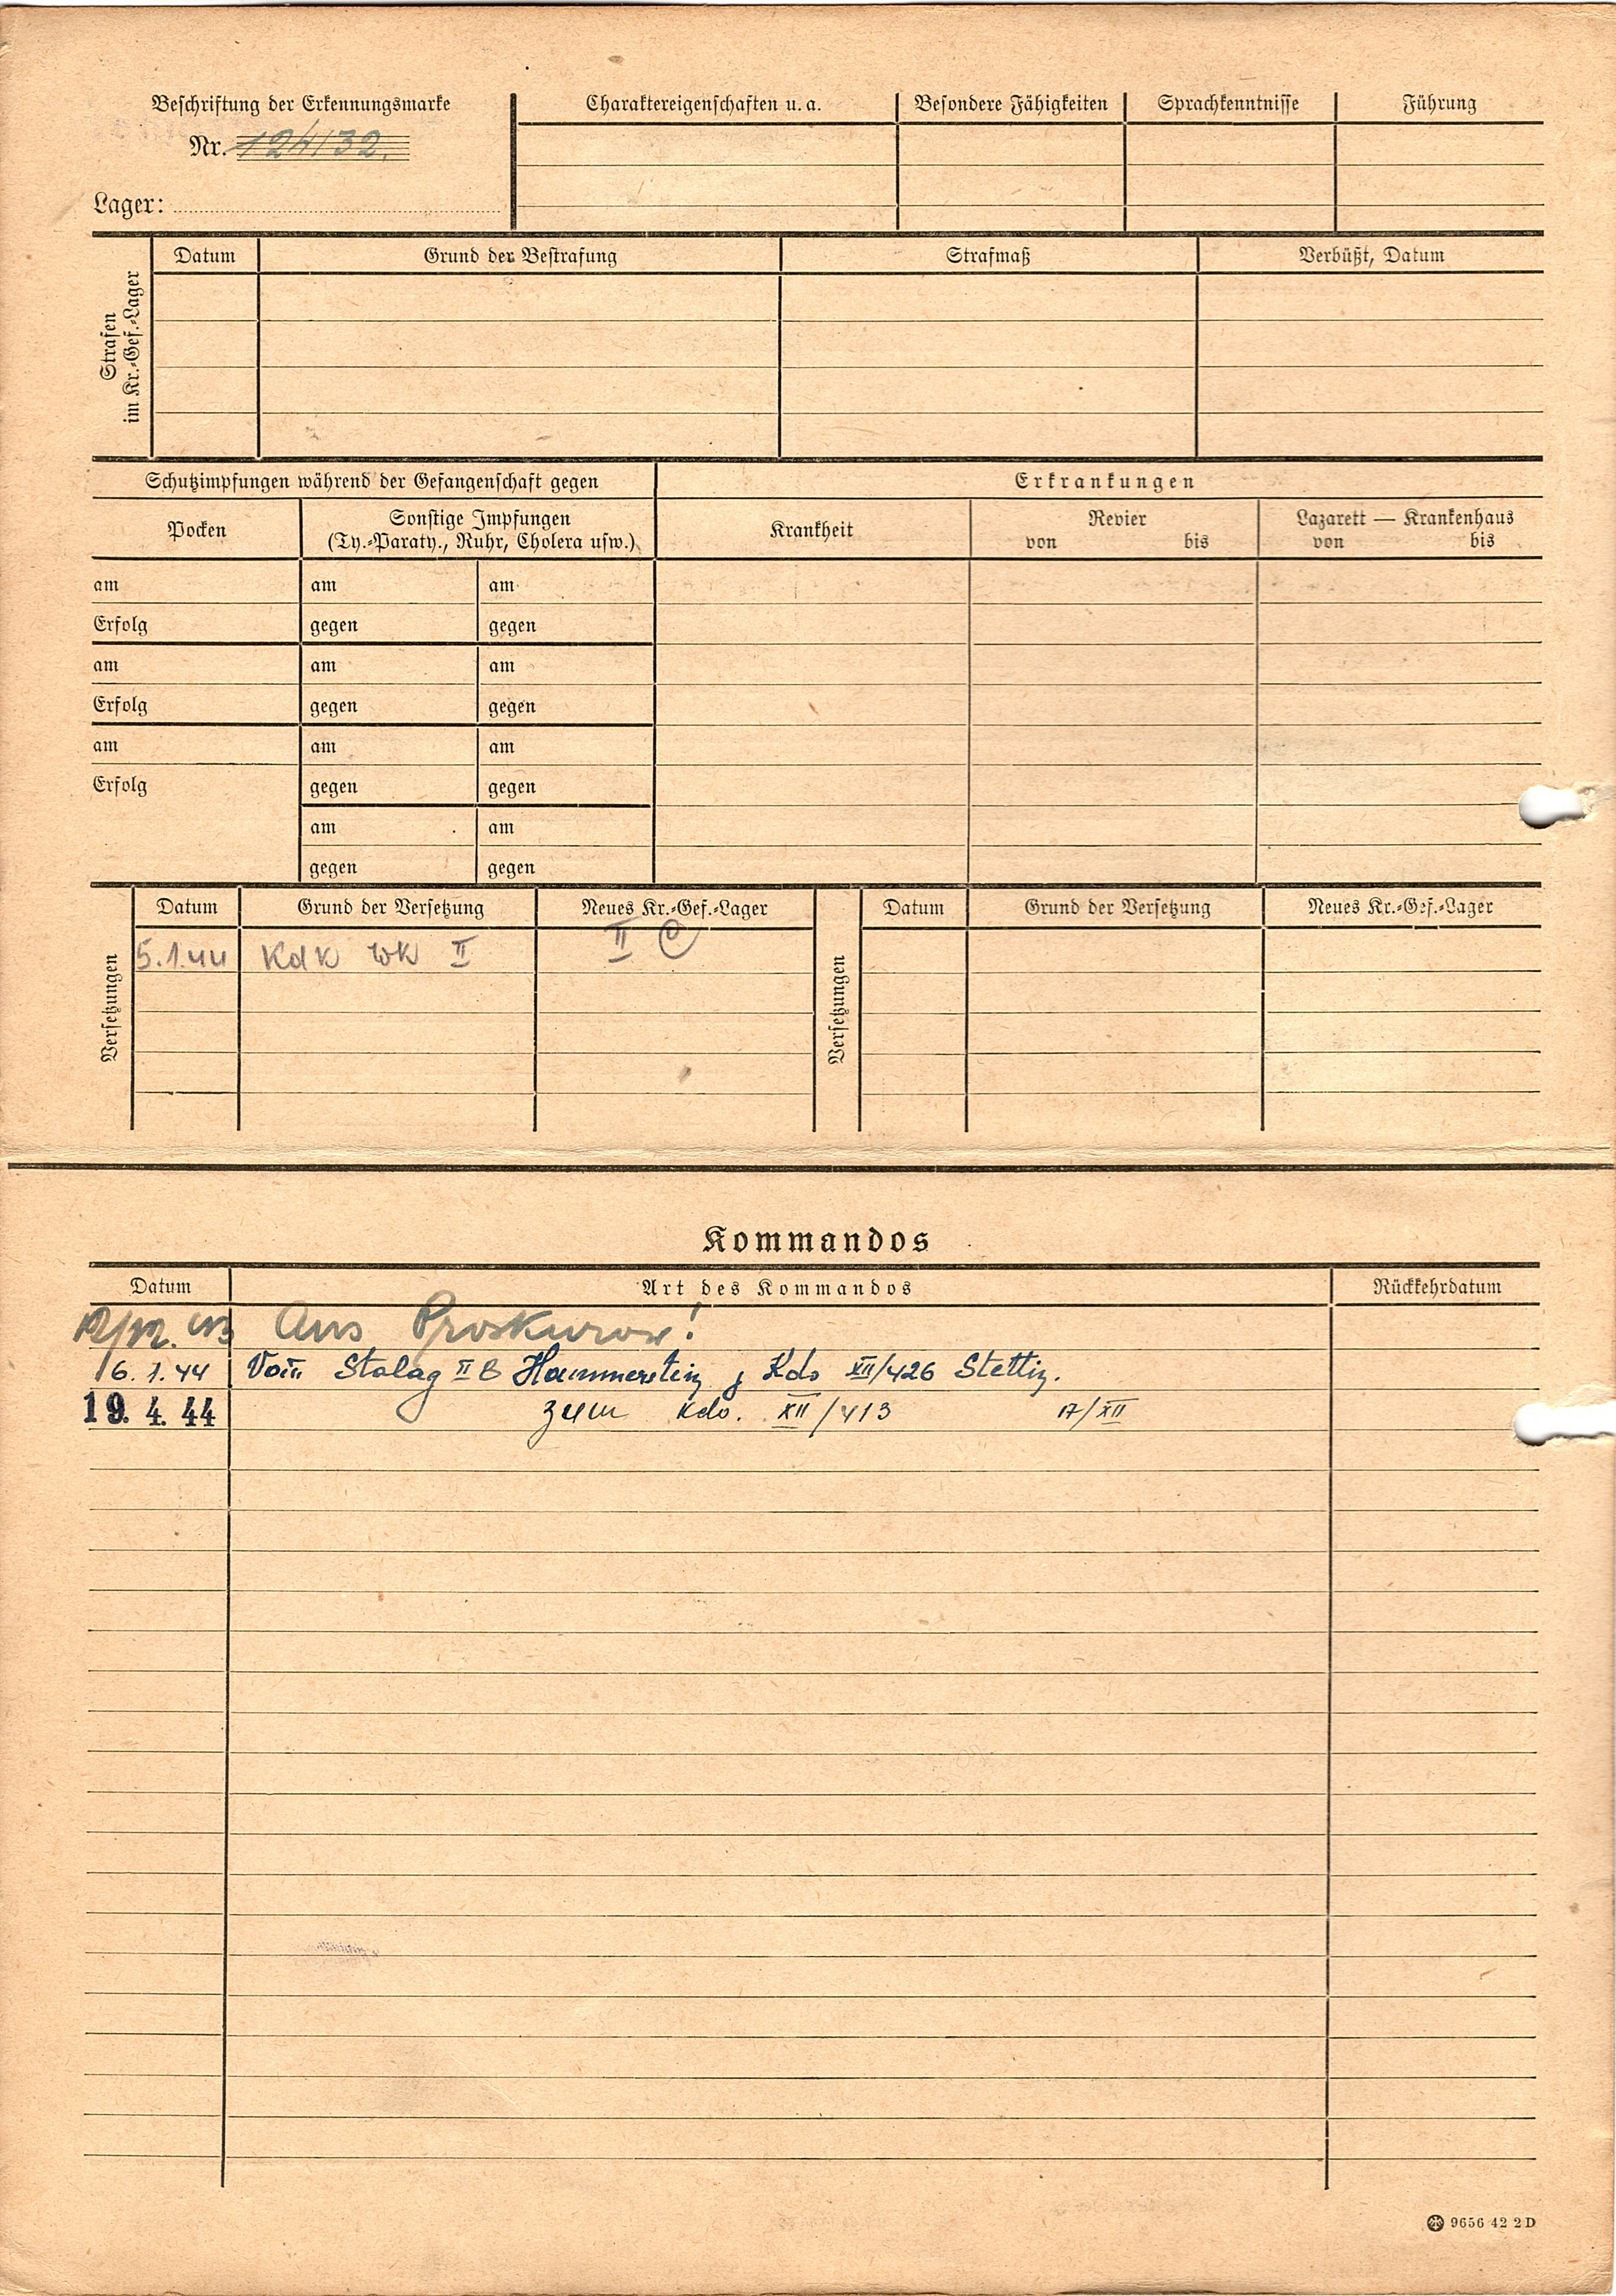 Beschriftung der Erkennungsmarke
Nr. 124132.
Lager:
Charaktereigenschaften u. a. Besondere Fähigkeiten Sprachkenntnisse Führung
Strafen im Kr.-Gef.-Lager
Datum Grund der Bestrafung Strafmaß Verbüßt, Datum
Schutzimpfungen während der Gefangenschaft gegen
Pocken
Sonstige Impfungen
(Ty.-Paraty., Ruhr, Cholera usw.)
am am am
Erfolg gegen gegen
am am am
Erfolg gegen gegen
am am am
Erfolg gegen gegen
am am
gegen gegen
Erkrankungen
Krankheit
Revier
von bis
Lazarett — Krankenhaus
von bis
Versetzungen
Datum Grund der Versetzung Neues Kr.-Gef.-Lager
5.1.44 Kdk Wk II II C
Versetzungen
Datum Grund der Versetzung Neues Kr.-Gef.-Lager
Kommandos
Datum Art des Kommandos Rückkehrdatum
Aus Proskurow!
6.1.44 Vom Stalag II B Hammerstein z Kdo XII/426 Stettin.
19. 4. 44 zum Kdo. XII/413 17/XII
9656 42 2 D